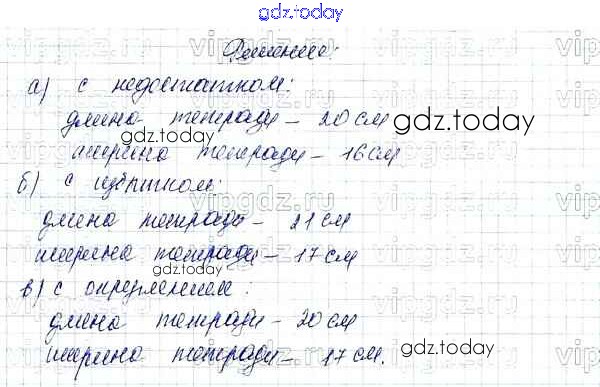 gdz.today
Решение:
а) с недостатком:
длина тетради – 20 см
gdz.today
gdz.today
ширина тетради – 16 см
б) с избытком:
длина тетради – 21 см
ширина тетради – 17 см
gdz.today
в) с округлением:
длина тетради – 20 см
gdz.today
ширина тетради – 17 см.